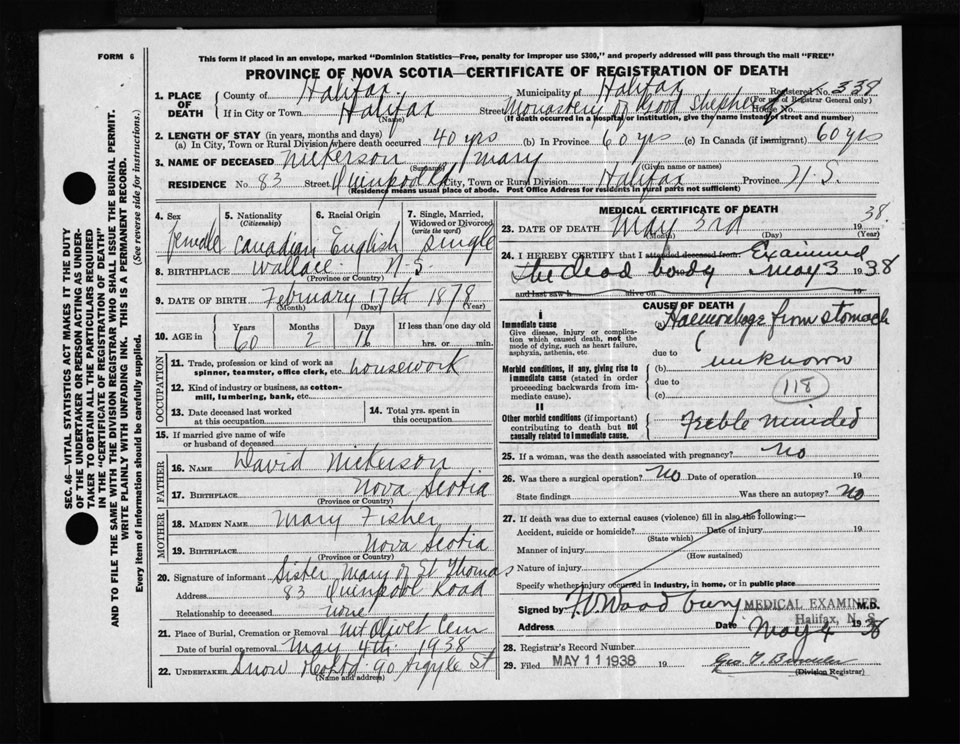 FORM 6
This form if placed in an envelope, marked "Dominion Statistics—Free, penalty for improper use $300," and properly addressed will pass through the mail "FREE"
PROVINCE OF NOVA SCOTIA—CERTIFICATE OF REGISTRATION OF DEATH
Registered No. 339
(For use of Registrar General only)
1. PLACE OF DEATH
County of Halifax Municipality of Halifax
If in City or Town Halifax Street Monastery of Good Shepherd House No.
(Name) (If death occurred in a hospital or institution, give the name instead of street and number)
2. LENGTH OF STAY (in years, months and days)
(a) In City, Town or Rural Division where death occurred 40 yrs (b) In Province 60 yrs (c) In Canada (if immigrant) 60 yrs
3. NAME OF DECEASED Nickerson Mary
(Surname) (Given name or names)
RESIDENCE No. 83 Street Quinpool Rd City, Town or Rural Division Halifax Province N.S.
(Residence means usual place of abode. Post Office Address for residents in rural parts not sufficient)
4. Sex
female
5. Nationality (Citizenship)
Canadian
6. Racial Origin
English
7. Single, Married, Widowed or Divorced (write the word)
single
8. BIRTHPLACE Wallace N-S.
(Province or Country)
9. DATE OF BIRTH February 17th 1878
(Month) (Day) (Year)
10. AGE in Years Months Days If less than one day old
60 2 16 hrs. or min.
OCCUPATION
11. Trade, profession or kind of work as spinner, teamster, office clerk, etc. housework
12. Kind of industry or business, as cotton-mill, lumbering, bank, etc.
13. Date deceased last worked at this occupation
14. Total yrs. spent in this occupation
15. If married give name of wife or husband of deceased
FATHER
16. NAME David Nickerson
17. BIRTHPLACE Nova Scotia
(Province or Country)
MOTHER
18. MAIDEN NAME Mary Fisher
19. BIRTHPLACE Nova Scotia
(Province or Country)
20. Signature of informant Sister Mary of St Thomas
Address 83 Quinpool Road
Relationship to deceased none
21. Place of Burial, Cremation or Removal Mt Olivet Cem
Date of burial or removal May 4th 1938
22. UNDERTAKER Snow & Co Ltd 90 Argyle St
(Name and address)
MEDICAL CERTIFICATE OF DEATH
23. DATE OF DEATH May 3rd 1938.
(Month) (Day) (Year)
24. I HEREBY CERTIFY that I attended deceased from Examined
the dead body May 3 1938
and last saw h alive on
CAUSE OF DEATH
I
Immediate cause
Give disease, injury or complication which caused death, not the mode of dying, such as heart failure, asphyxia, asthenia, etc.
(a) Haemorrhage from stomach
due to
Morbid conditions, if any, giving rise to immediate cause (stated in order proceeding backwards from immediate cause).
(b) unknown
due to
(c) 118
II
Other morbid conditions (if important) contributing to death but not causally related to immediate cause.
Feeble minded
25. If a woman, was the death associated with pregnancy? No
26. Was there a surgical operation? No Date of operation 19
State findings Was there an autopsy? No
27. If death was due to external causes (violence) fill in also the following:—
Accident, suicide or homicide? Date of injury 19
(State which)
Manner of injury
(How sustained)
Nature of injury
Specify whether injury occurred in industry, in home, or in public place
Signed by F.V. Woodbury M.D.
MEDICAL EXAMINER
Halifax, N. S.
Address Date May 4 1938
28. Registrar's Record Number
29. Filed MAY 11 1938 19
(Division Registrar)
SEC. 46—VITAL STATISTICS ACT MAKES IT THE DUTY
OF THE UNDERTAKER OR PERSON ACTING AS UNDER-
TAKER TO OBTAIN ALL THE PARTICULARS REQUIRED
IN THE "CERTIFICATE OF REGISTRATION OF DEATH"
AND TO FILE THE SAME WITH THE DIVISION REGISTRAR WHO SHALL ISSUE THE BURIAL PERMIT.
WRITE PLAINLY WITH UNFADING INK. THIS IS A PERMANENT RECORD.
Every item of information should be carefully supplied. (See reverse side for instructions.)